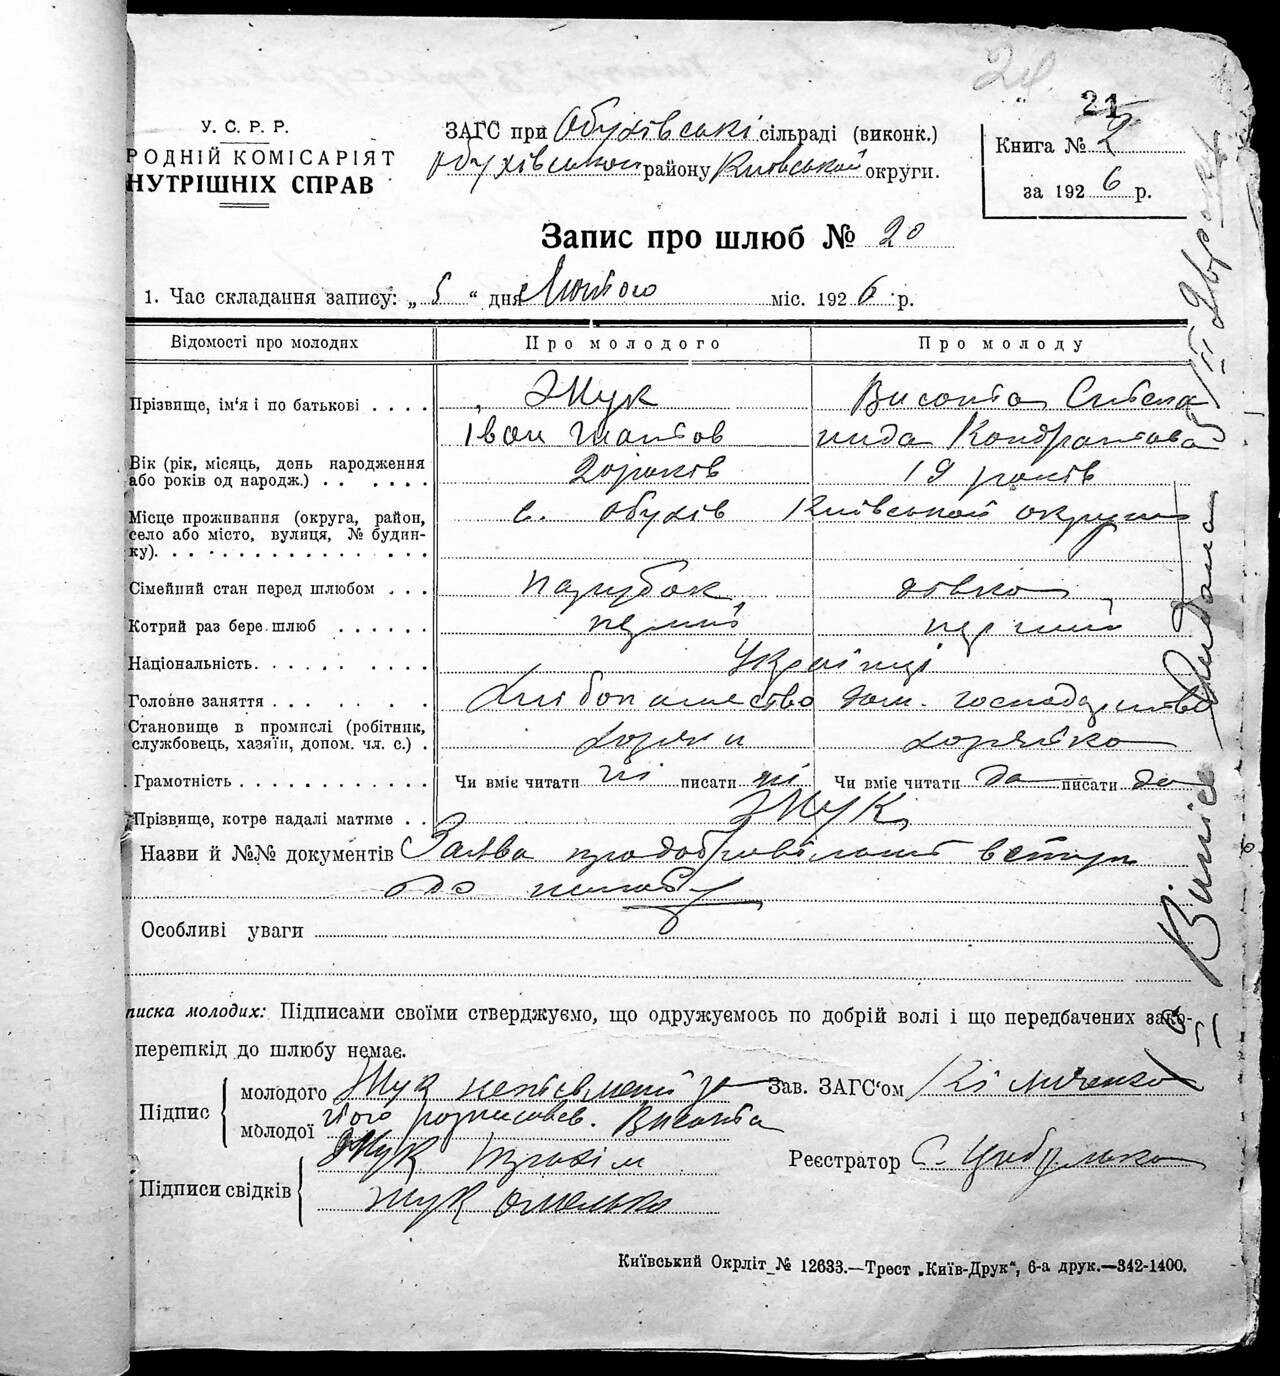 21
У. С. Р. Р.
РОДНІЙ КОМІСАРІЯТ
НУТРІШНІХ СПРАВ
ЗАГС при Обухівські сільраді (виконк.)
Обухівськой району Київськой округи.
Книга № 2
за 1926 р.
Запис про шлюб № 20
1. Час складання запису: „ 5 “ дня Лютого міс. 1926 р.
Відомості про молодих Про молодого Про молоду
Прізвище, ім'я і по батькові . . . . Жук Висоцка Степа
Іван Кондратова
Вік (рік, місяць, день народження
або років од народж.) . . . . . . 20 років 19 років
Місце проживання (округа, район, с. Обухів Київськой округи
село або місто, вулиця, № будин-
ку). . . . . . . . . . . . . . . .
Сімейний стан перед шлюбом . . . парубок дівка
Котрий раз бере шлюб . . . . . . перший перший
Національність. . . . . . . . . . Українці
Головне заняття . . . . . . . . . Хлібопашество дом. господарство
Становище в промислі (робітник,
службовець, хазяїн, допом. чл. с.) .
Грамотність . . . . . . . . . . . Чи вміє читати ні писати ні Чи вміє читати да писати да
Прізвище, котре надалі матиме . . Жук
Назви й №№ документів Заява про добровільний вступ
до шлюбу
Особливі уваги
писка молодих: Підписами своїми стверджуємо, що одружуємось по добрій волі і що передбачених зако-
перешкід до шлюбу немає.
Підпис
молодого Жук неписьмений за
молодої його росписавсь. Висоцка
Зав. ЗАГС'ом
Підписи свідків
Жук Трохім
Жук Омелько
Реєстратор С.
Київський Окрліт № 12633.—Трест „Київ-Друк“, 6-а друк.—342-1400.